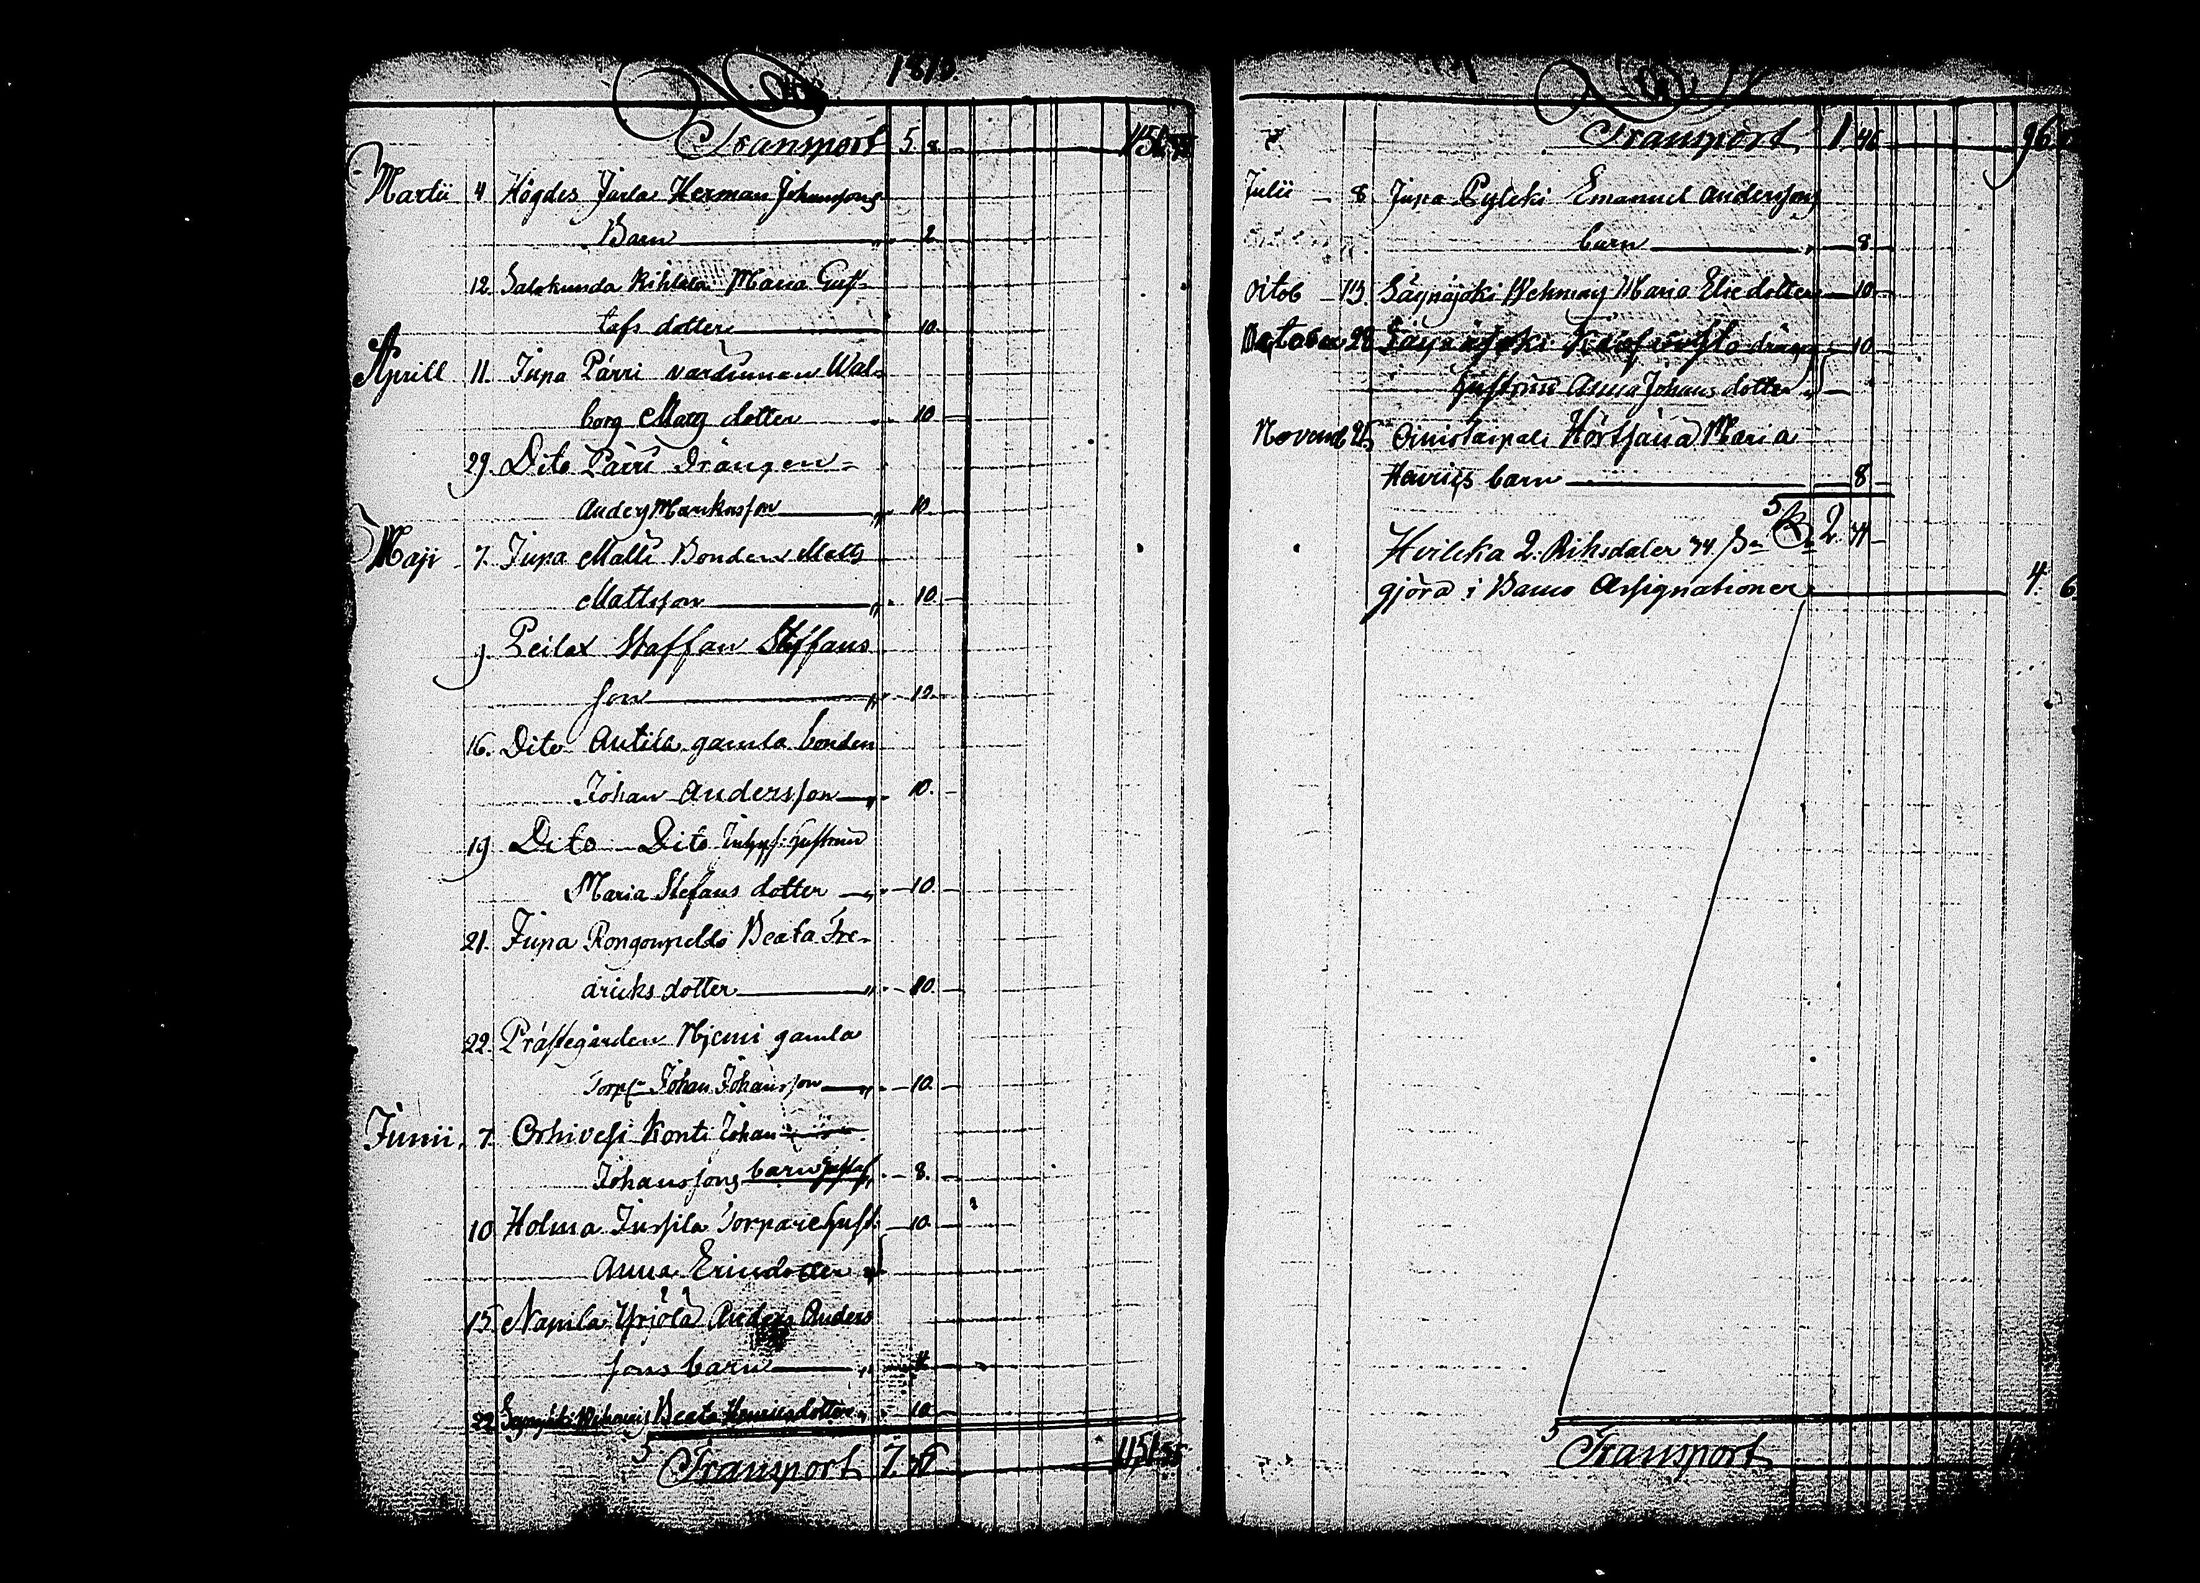 1810.
Transport 5. 8. 1151.
Martii 4 Högdes Jarla Herman Johanssons
Barn " 2
12. Salokunda Rihlala Maria Gus-
tafs dotter 10
Aprill 11. Jupa Pärri värdinnan Wal-
borg Matts dotter " 10
29. Dito Pärri Drängen
Anders Markusson " 10
Maji 7. Jupa Malli Bonden Matts
Mattsson " 10
9 Peilax Staffan Steffans
son " 12.
16. Dito Antila gamla bonden
Johan Andersson " 10.
19 Dito Dito hustrun
Maria Stefans dotter " 10
21. Jupa Rongonpeldo Beata Fre-
driks dotter " 10.
22. Prästegården Njemi gamla
Torp. Johan Johansson " 10.
Junii, 7. Orhivesi Konti Johan
Johanssons barn Gustaf " 8.
10 Holma Jussila Torpare hust. 10
Anna Ericsdotter "
15. Napila Yrjölä Anders Anders
sons barn "
22 Beata Henricsdotter " 10
5 Transport 7. 1151.
Transport 1 46 96
Julii 8 Jupa Pyleki Emanuel Anderssons
barn " 8
Octob 13. Säynäjoki Wehmas Maria Elie dotter 10
October 28 Säynäjoki dräng 10
hustrun Anna Johans dotter "
Novemb 25 Oinistaipale Hörtsänä Maria
Henrics barn 8
5 R 2. 74
Hvilcka 2. Riksdaler 74. s
gjöra i Banco Assignationer 4. 6
5 Transport